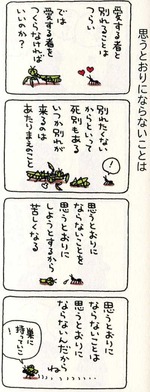 思うとおりにならないことは
愛する者と
別れることは
つらい
では
愛する者を
つくらなければ
いいのか?
!
別れたくない
からといって
死別もある
いつか別れが
来るのは
あたりまえのこと
思うとおりに
ならないことを
思うとおりに
しようとするから
苦しくなる
思うとおりに
ならないことは
思うとおりに
ならないんだから
ね……
巣に
持っていこ
!